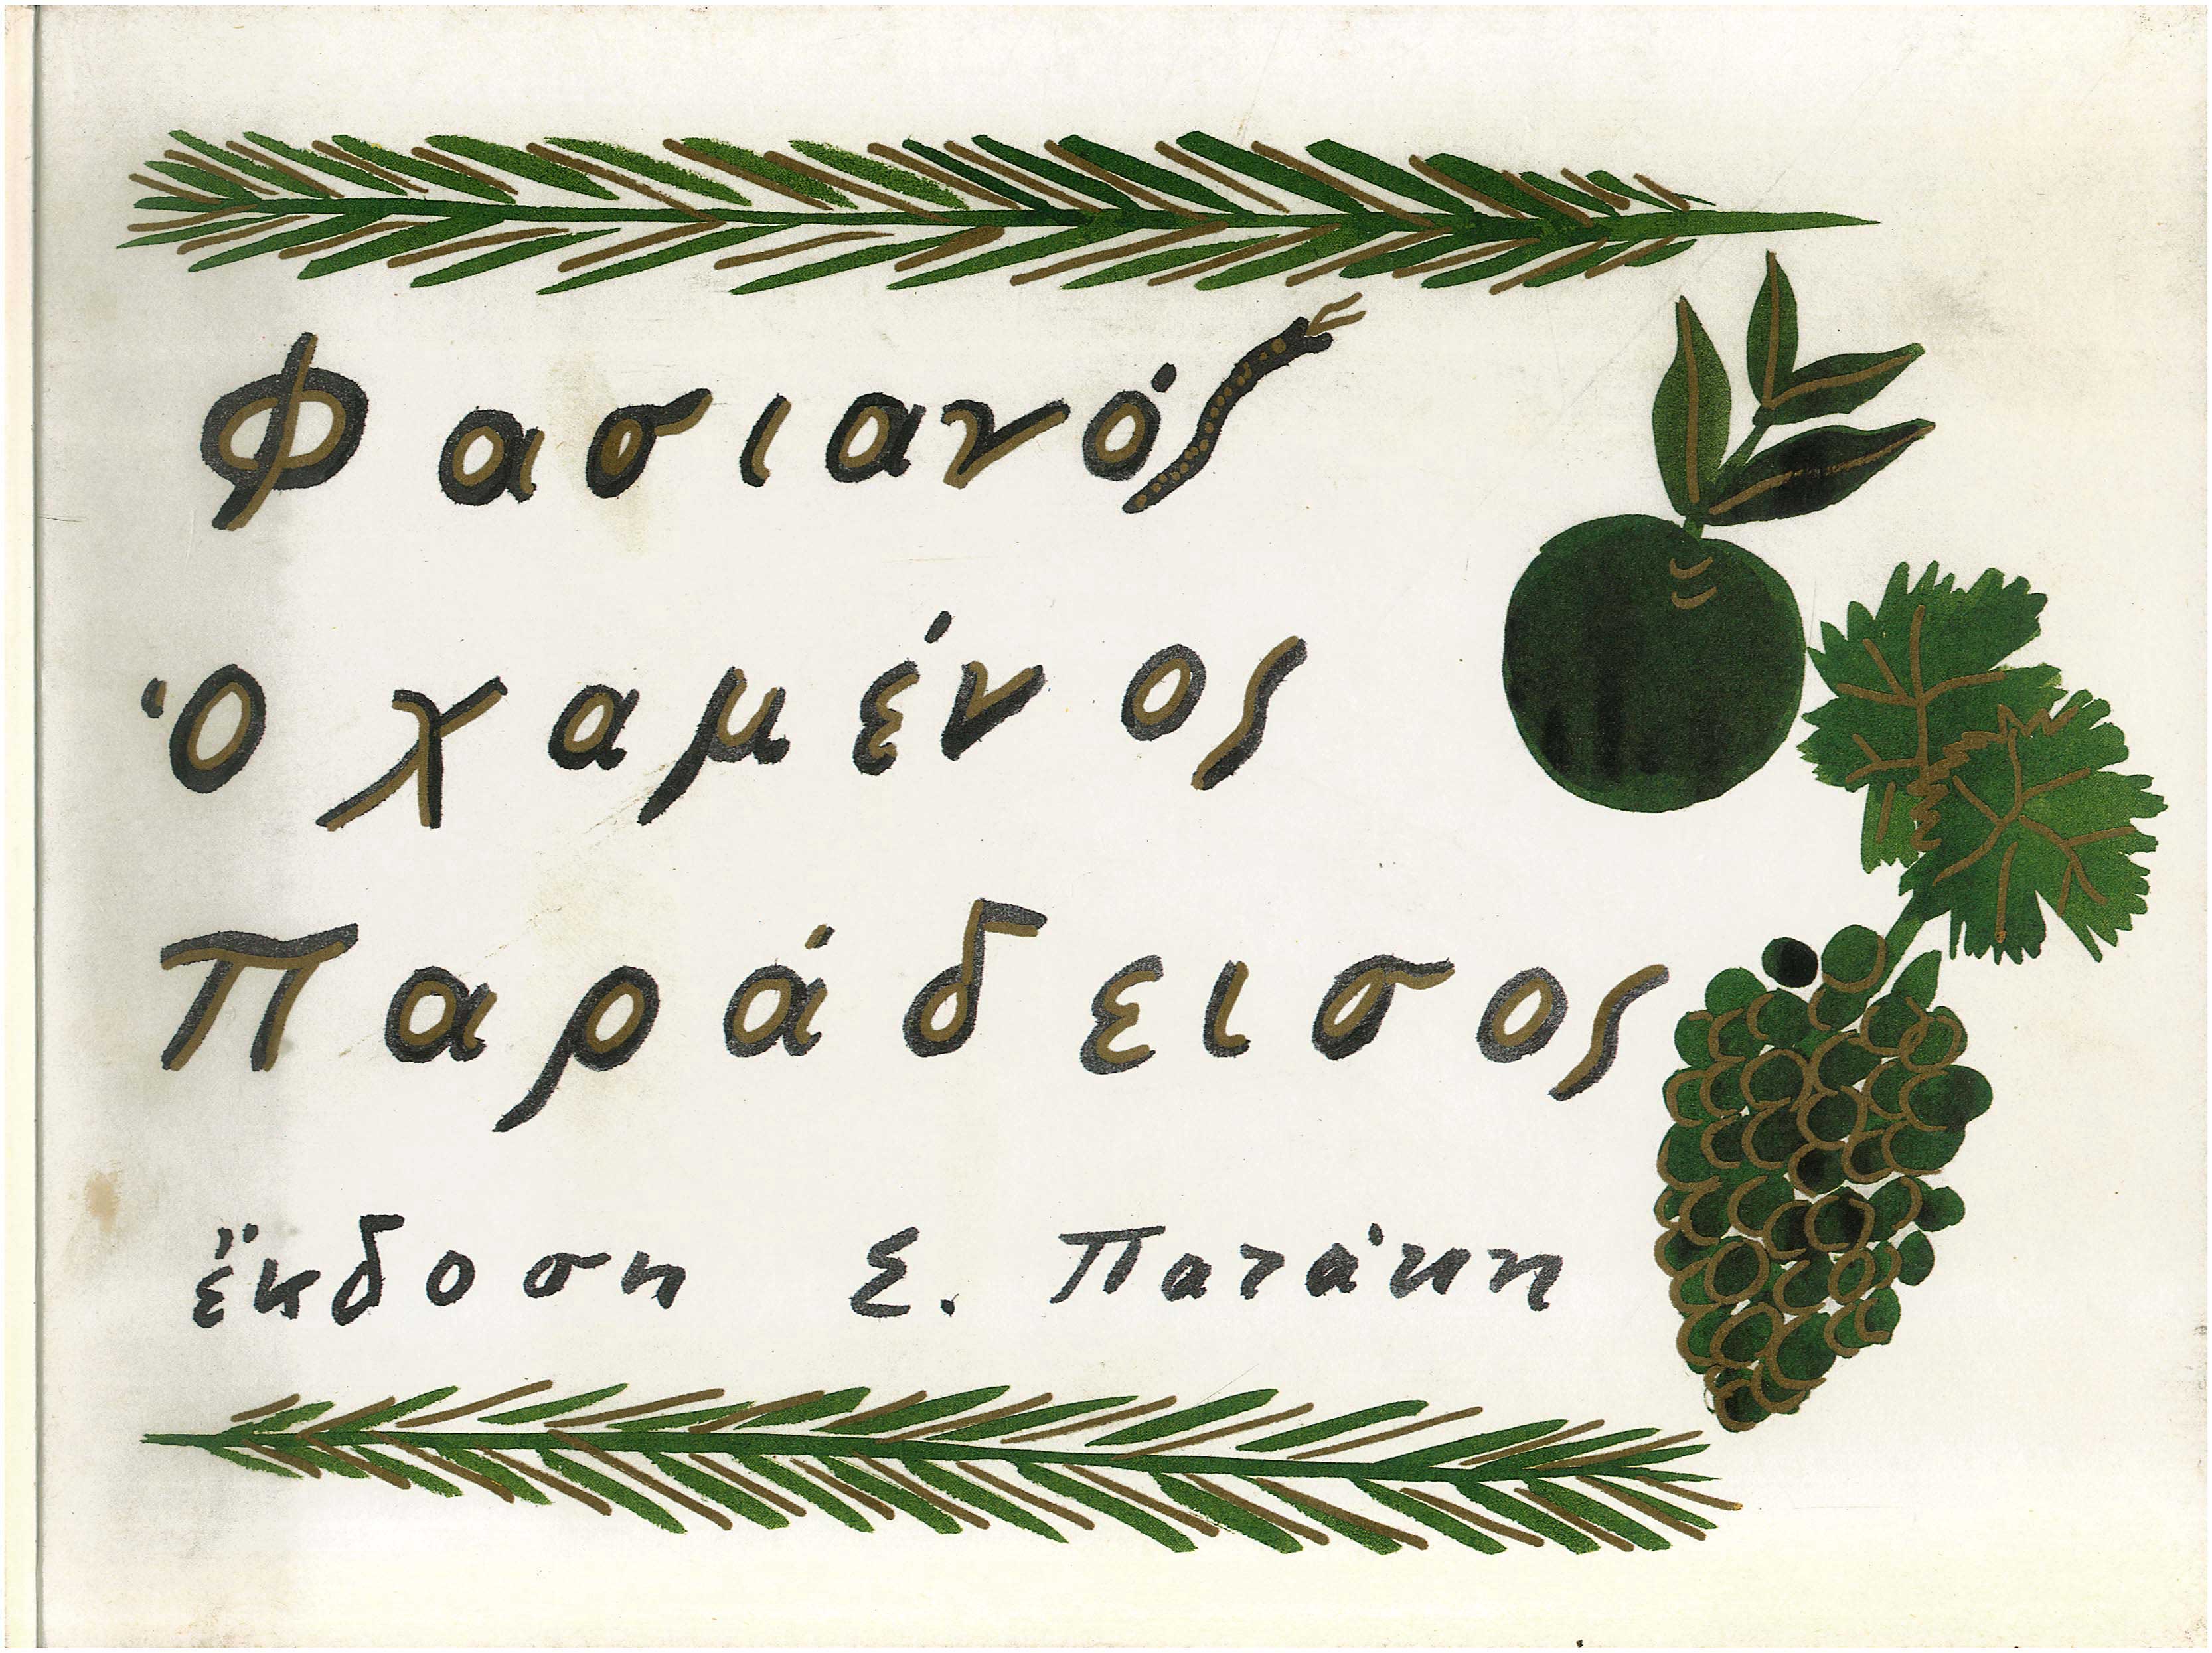 Φασιανός
Ὁ χαμένος
Παράδεισος
ἔκδοση Σ. Πατάκη